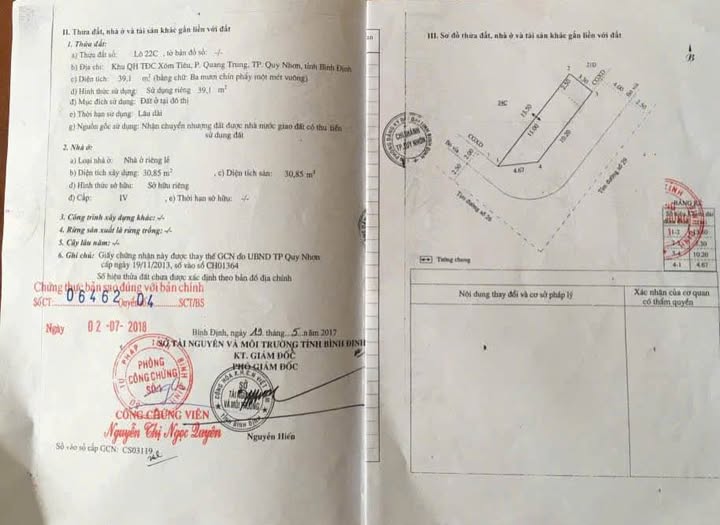 II. Thửa đất, nhà ở và tài sản khác gắn liền với đất
1. Thửa đất:
a) Thửa đất số: Lô 22C, tờ bản đồ số: -/-
b) Địa chỉ: Khu QH TĐC Xóm Tiêu, P. Quang Trung, TP. Quy Nhơn, tỉnh Bình Định
c) Diện tích: 39,1 m² (bằng chữ: Ba mươi chín phẩy một mét vuông)
d) Hình thức sử dụng: Sử dụng riêng 39,1 m²
đ) Mục đích sử dụng: Đất ở tại đô thị
e) Thời hạn sử dụng: Lâu dài
g) Nguồn gốc sử dụng: Nhận chuyển nhượng đất được nhà nước giao đất có thu tiền
sử dụng đất
2. Nhà ở:
a) Loại nhà ở: Nhà ở riêng lẻ
b) Diện tích xây dựng: 30,85 m² , c) Diện tích sàn: 30,85 m²
d) Hình thức sở hữu: Sở hữu riêng
đ) Cấp: IV , e) Thời hạn sở hữu: -/-
3. Công trình xây dựng khác: -/-
4. Rừng sản xuất là rừng trồng: -/-
5. Cây lâu năm: -/-
6. Ghi chú: Giấy chứng nhận này được thay thế GCN do UBND TP Quy Nhơn
cấp ngày 19/11/2013, số vào sổ CH01364
Số hiệu thửa đất chưa được xác định theo bản đồ địa chính
Chứng thực bản sao đúng với bản chính
Số CT: 06462 Quyển 04 SCT/BS
Ngày 02-07-2018
Bình Định, ngày 19 tháng 5 năm 2017
SỞ TÀI NGUYÊN VÀ MÔI TRƯỜNG TỈNH BÌNH ĐỊNH
KT. GIÁM ĐỐC
PHÓ GIÁM ĐỐC
PHÒNG
CÔNG CHỨNG
SỞ
TÀI NGUYÊN
VÀ MÔI TRƯỜNG
TỈNH BÌNH ĐỊNH
CÔNG CHỨNG VIÊN
Nguyễn Thị Ngọc Quyên
Nguyễn Hiến
Số vào sổ cấp GCN: CS03119
III. Sơ đồ thửa đất, nhà ở và tài sản khác gắn liền với đất
B
21D
2
3.50
3
CGXD
4.00
Bó vỉa
2.50
21C
13.50
11.00
10.20
CHI NHÁNH
TP.QUY NHƠN
CGXD
Bó vỉa
2.00
2.50
1
4.67
4
Tim đường số 29
Tim đường số 26
BẢNG KÊ
1-2 13.50
2-3 3.50
3-4 10.20
4-1 4.67
Tường chung
Nội dung thay đổi và cơ sở pháp lý
Xác nhận của cơ quan
có thẩm quyền